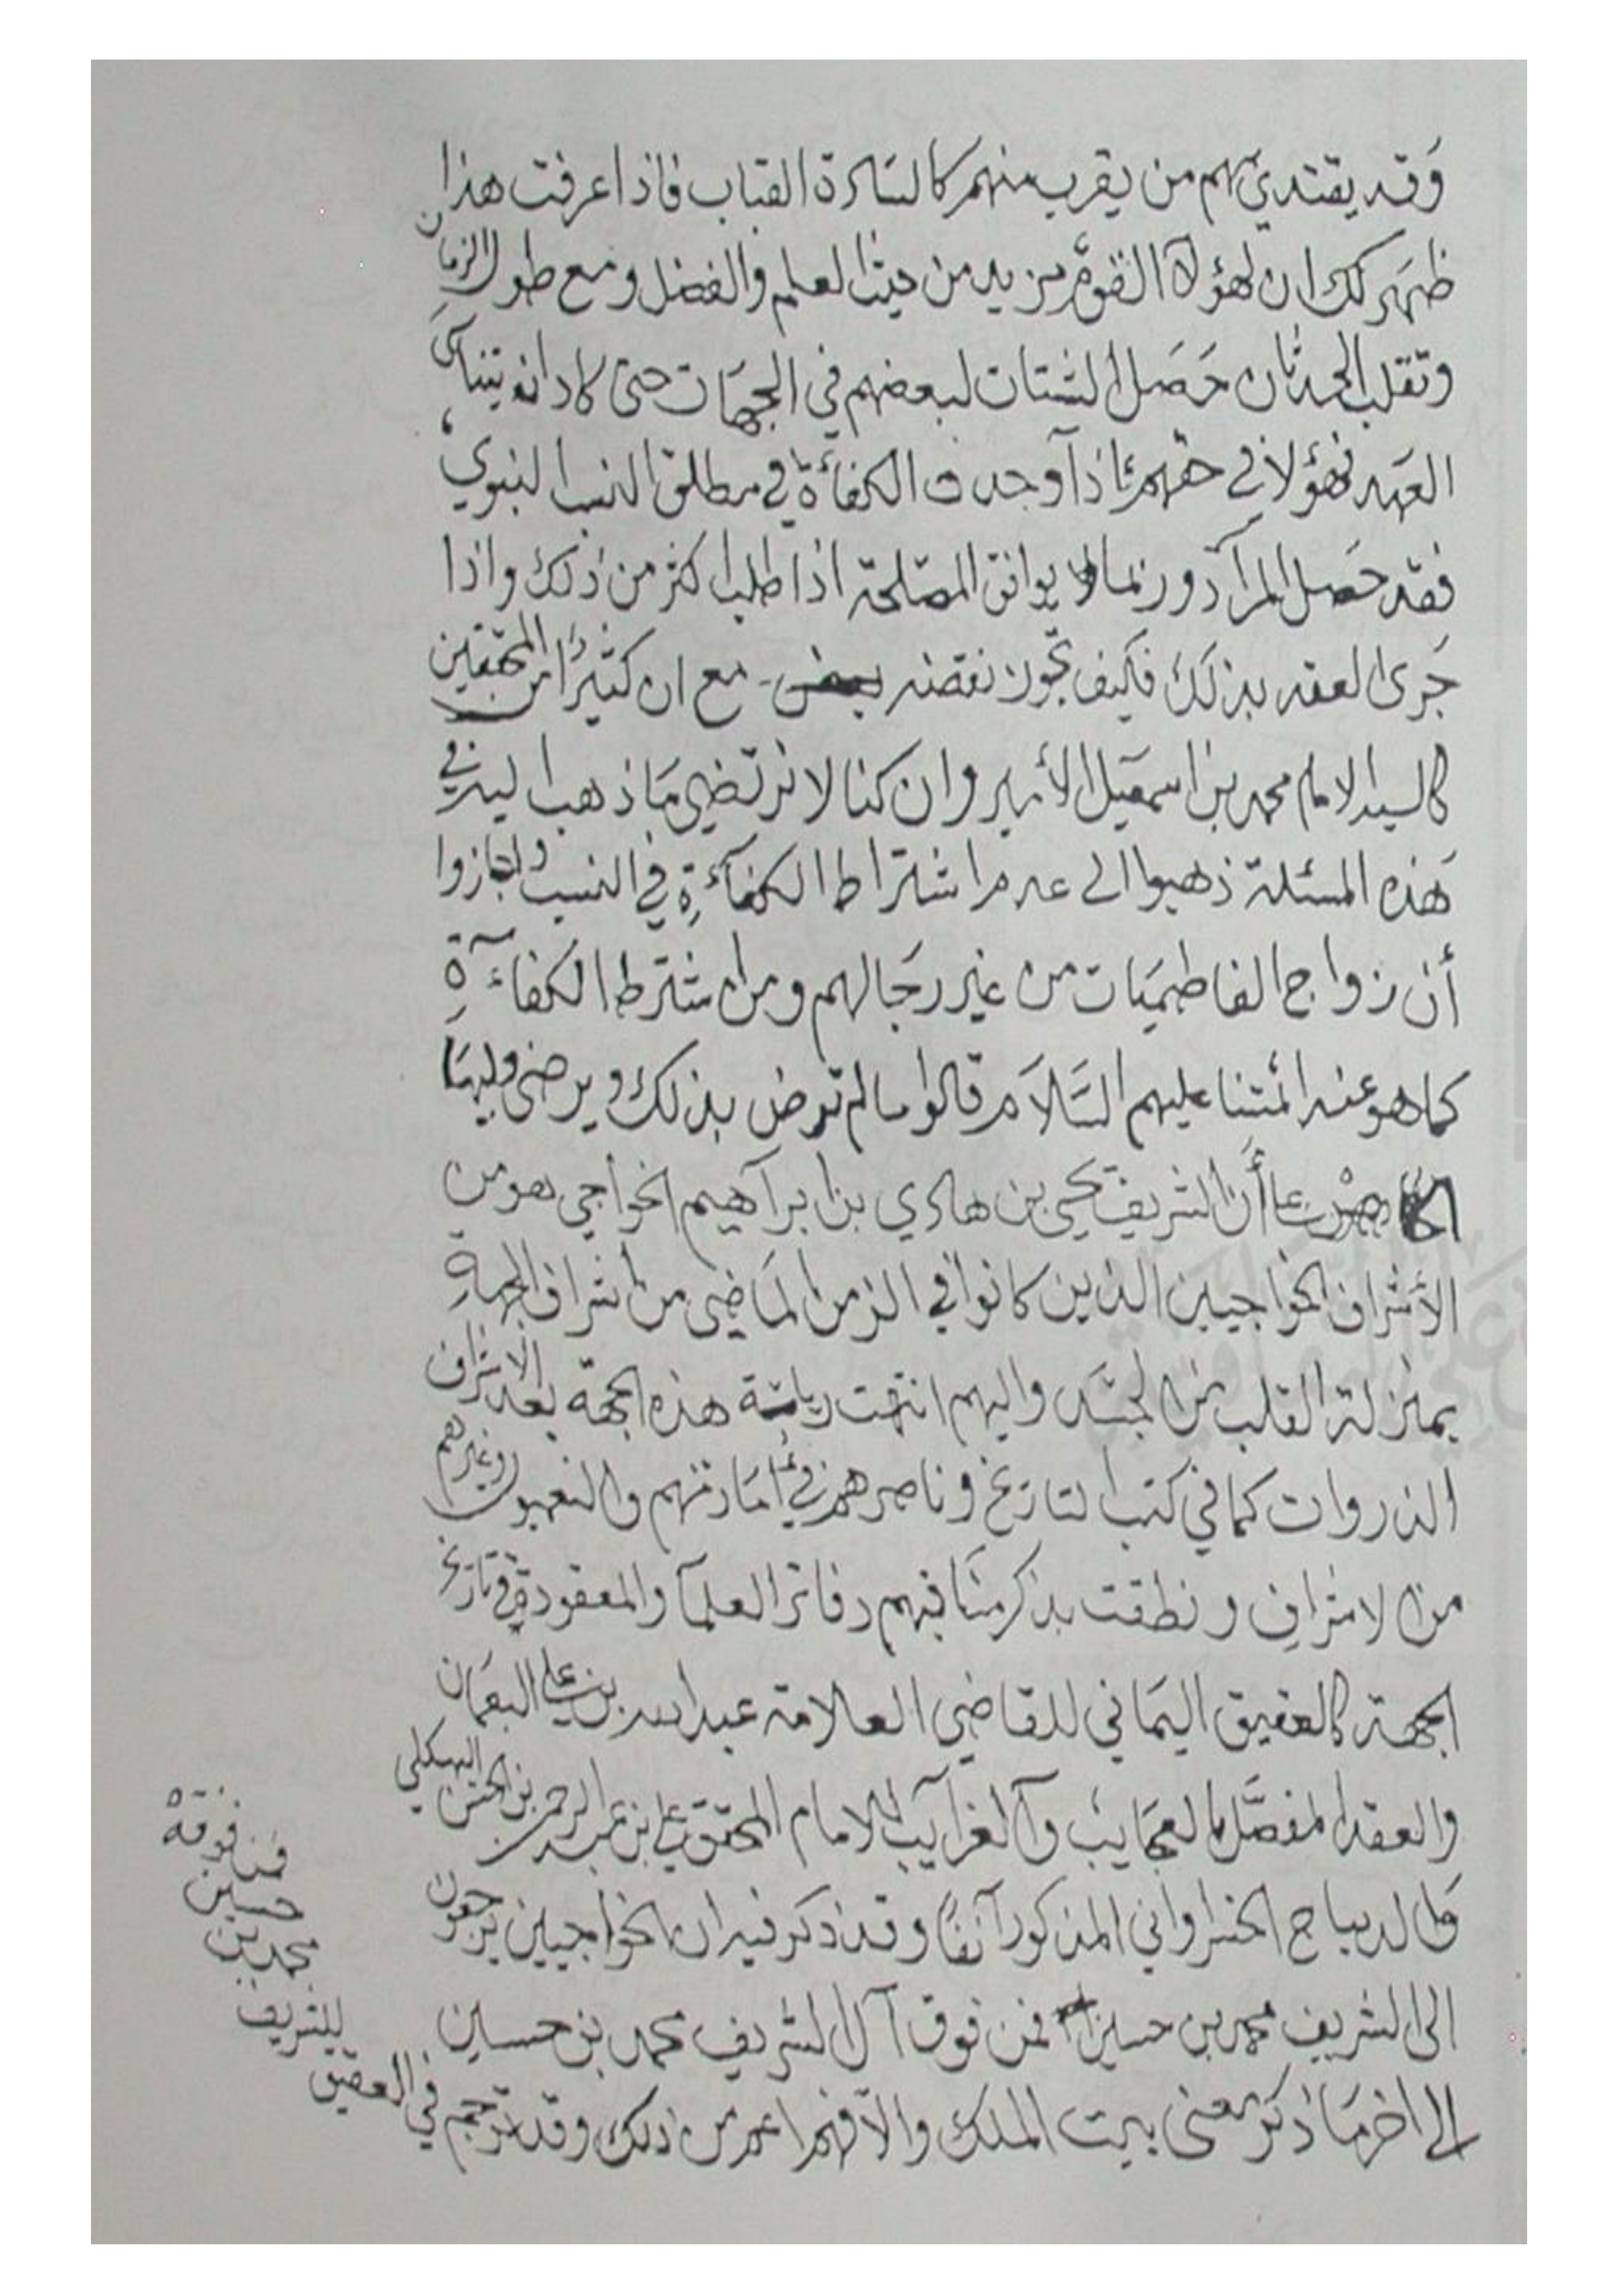 وقد يقتدي بهم من يقرب منهم كالسادة القباب فاذا عرفت هذا
ظهر لك ان لهؤلاء القوم مزيد من حيث العلم والفضل ومع طول الزمان
وتقلب الحدثان حصل الشتات لبعضهم في الجهات حتى كاد انه يتناسى
العهد فهؤلا في حقهم اذا وجدت الكفاءة في مطلق النسب النبوي
فقد حصل المراد وربما لا يوافق المصلحة اذا طلب اكثر من ذلك واذا
جرى العقد بذلك فكيف نقضه مع ان كثيرا من المحققين
كالسيد الامام محمد بن اسمعيل الأمير وان كنا لا نرتضي ما ذهب اليه في
هذه المسئلة ذهبوا الى عدم اشتراط الكفآءة في النسب واجازوا
أن زواج الفاطميات من غير رجالهم ومن اشترط الكفاءة
كما هو عند ائمتنا عليهم السلام قالوا ما لم ترض بذلك ويرضى وليها
أن الشريف يحيى بن هادي بن ابراهيم الخواجي هو من
الأشراف الخواجيين الذين كانوا في الزمن الماضي من اشراف الجهة
بمنزلة القلب من الجسد واليهم انتهت رياسة هذه الجهة بعد الاشراف
الذروات كما في كتب التاريخ وناصرهم في امارتهم والنعميون وغيرهم
من الاشراف ونطقت بذكر مناقبهم دفاتر العلمآ والمعقودة في تاريخ
الجهة كالعقيق اليماني للقاضي العلامة عبدالله بن علي النعمان
والعقد المفصل بالعجايب والغرايب للامام المحقق علي بن عبد الرحمن بن الحسن البهكلي
وكالديباج الخسرواني المذكور آنفا وقد ذكر فيه ان الخواجيين يرجعون
الى الشريف محمد بن حسين فمن فوق آل الشريف محمد بن حسين
الى اخر ما ذكر معنى بيت الملك والا فهم اعم من ذلك وقد ترجم في العقيق
للشريف
محمد بن
حسين
فمن فوقه